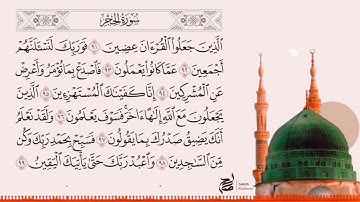 سُورَةُ الحِجْرِ
الَّذِينَ جَعَلُوا الْقُرْءَانَ عِضِينَ ٩١ فَوَرَبِّكَ لَنَسْـَٔلَنَّهُمْ
أَجْمَعِينَ ٩٢ عَمَّا كَانُوا يَعْمَلُونَ ٩٣ فَاصْدَعْ بِمَا تُؤْمَرُ وَأَعْرِضْ
عَنِ الْمُشْرِكِينَ ٩٤ إِنَّا كَفَيْنَاكَ الْمُسْتَهْزِءِينَ ٩٥ الَّذِينَ
يَجْعَلُونَ مَعَ اللَّهِ إِلَهًا ءَاخَرَ فَسَوْفَ يَعْلَمُونَ ٩٦ وَلَقَدْ نَعْلَمُ
أَنَّكَ يَضِيقُ صَدْرُكَ بِمَا يَقُولُونَ ٩٧ فَسَبِّحْ بِحَمْدِ رَبِّكَ وَكُن
مِّنَ السَّاجِدِينَ ٩٨ وَاعْبُدْ رَبَّكَ حَتَّى يَأْتِيَكَ الْيَقِينُ ٩٩
Saleh